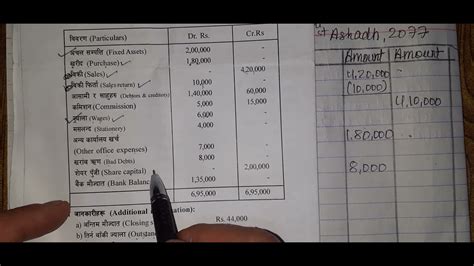 Ashadh, 2077
विवरण (Particulars) Dr. Rs. Cr.Rs
अचल सम्पत्ति (Fixed Assets) 2,00,000 -
खरीद (Purchase) 1,80,000 -
बिक्री (Sales) - 4,20,000
बिक्री फिर्ता (Sales return) 10,000 -
आसामी र साहुहरु (Debtors & creditors) 1,40,000 60,000
कमिशन (Commission) 5,000 15,000
ज्याला (Wages) 6,000 -
मसलन्द (Stationery) 4,000 -
अन्य कार्यालय खर्च
(Other office expenses) 7,000 -
खराब ऋण (Bad Debts) 8,000 -
शेयर पुँजी (Share capital) - 2,00,000
बैंक मौज्दात (Bank Balanc 1,35,000 -
6,95,000 6,95,000
जानकारीहरू (Additional ation):
a) अन्तिम मौज्दात (Closing s Rs. 44,000
b) तिर्न बाँकी ज्याला (Outstan
Amount Amount
4,20,000
(10,000)
4,10,000
1,80,000
8,000